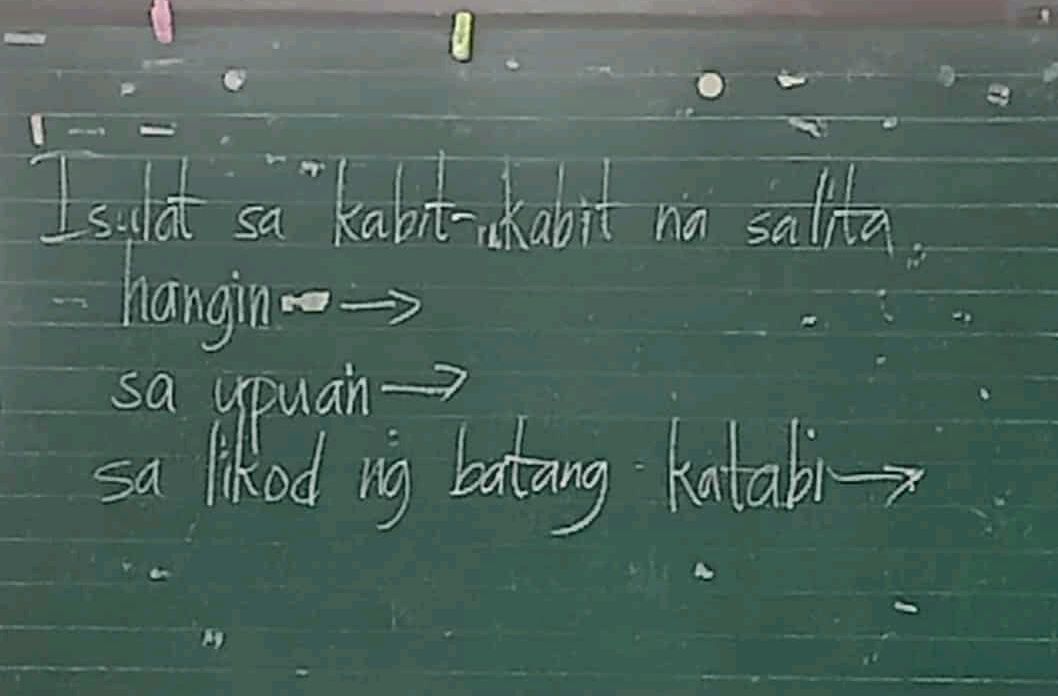 Isulat sa kabit-kabit na salita.
hangin →
sa upuan →
sa likod ng batang katabi →